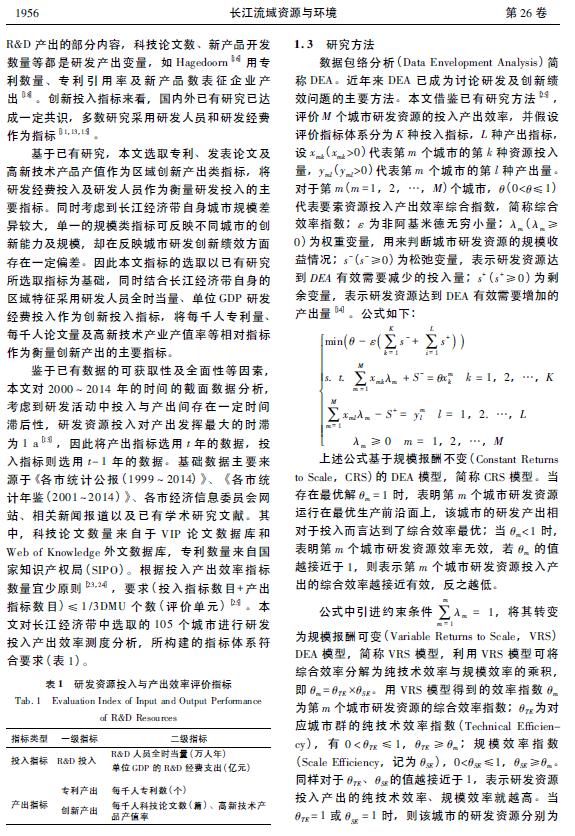 1956
长江流域资源与环境
第 26 卷
R&D 产出的部分内容，科技论文数、新产品开发
数量等都是研发产出变量，如 Hagedoorn[16] 用专
利数量、专利引用率及新产品数表征企业产
出[18]。创新投入指标来看，国内外已有研究已达
成一定共识，多数研究采用研发人员和研发经费
作为指标[11,13,15]。
基于已有研究，本文选取专利、发表论文及
高新技术产品产值作为区域创新产出类指标，将
研发经费投入及研发人员作为衡量研发投入的主
要指标。同时考虑到长江经济带自身城市规模差
异较大，单一的规模类指标可反映不同城市的创
新能力及规模，却在反映城市研发创新绩效方面
存在一定偏差。因此本文指标的选取以已有研究
所选取指标为基础，同时结合长江经济带自身的
区域特征采用研发人员全时当量、单位 GDP 研发
经费投入作为创新投入指标，将每千人专利量、
每千人论文量及高新技术产业产值率等相对指标
作为衡量创新产出的主要指标。
鉴于已有数据的可获取性及全面性等因素，
本文对 2000～2014 年的时间的截面数据分析，
考虑到研发活动中投入与产出间存在一定时间
滞后性，研发资源投入对产出发挥最大的时滞
为 1 a[13]，因此将产出指标选用 t 年的数据，投
入指标则选用 t-1 年的数据。基础数据主要来
源于《各市统计公报(1999～2014)》、《各市统
计年鉴(2001~2014)》、各市经济信息委员会网
站、相关新闻报道以及已有学术研究文献。其
中，科技论文数量来自于 VIP 论文数据库和
Web of Knowledge 外文数据库，专利数量来自国
家知识产权局(SIPO)。根据投入产出效率指标
数量宜少原则[23,24]，要求(投入指标数目+产出
指标数目)≤1/3DMU 个数(评价单元)[25]。本
文对长江经济带中选取的 105 个城市进行研发
投入产出效率测度分析，所构建的指标体系符
合要求(表 1)。
表 1 研发资源投入与产出效率评价指标
Tab. 1 Evaluation Index of Input and Output Performance
of R&D Resources
指标类型 一级指标 二级指标
投入指标 R&D 投入 R&D 人员全时当量(万人年)
单位 GDP 的 R&D 经费支出(亿元)
产出指标 专利产出 每千人专利数(个)
创新产出 每千人科技论文数(篇)、高新技术产
品产值率
1.3 研究方法
数据包络分析(Data Envelopment Analysis)简
称 DEA。近年来 DEA 已成为讨论研发及创新绩
效问题的主要方法。本文借鉴已有研究方法[25]，
评价 M 个城市研发资源的投入产出效率，并假设
评价指标体系分为 K 种投入指标，L 种产出指标，
设 xmk(xmk>0)代表第 m 个城市的第 k 种资源投入
量，yml(yml>0)代表第 m 个城市的第 l 种产出量。
对于第 m(m=1，2，…，M)个城市，θ(0<θ≤1)
代表要素资源投入产出效率综合指数，简称综合
效率指数；ε 为非阿基米德无穷小量；λm(λm≥
0)为权重变量，用来判断城市研发资源的规模收
益情况；s⁻(s⁻≥0)为松弛变量，表示研发资源达
到 DEA 有效需要减少的投入量；s⁺(s⁺≥0)为剩
余变量，表示研发资源达到 DEA 有效需要增加的
产出量[14]。公式如下：
min(θ - ε(∑k=1K s⁻ + ∑i=1L s⁺))
s. t. ∑m=1M xmkλm + S⁻ = θxkm k = 1，2，…，K
∑m=1M xmlλm - S⁺ = ylm l = 1，2. …，L
λm ≥ 0 m = 1，2，…，M
上述公式基于规模报酬不变(Constant Returns
to Scale，CRS)的 DEA 模型，简称 CRS 模型。当
存在最优解 θm=1 时，表明第 m 个城市研发资源
运行在最优生产前沿面上，该城市的研发产出相
对于投入而言达到了综合效率最优；当 θm<1 时，
表明第 m 个城市研发资源效率无效，若 θm 的值
越接近于 1，则表示第 m 个城市研发资源投入产
出的综合效率越接近有效，反之越低。
公式中引进约束条件 ∑m=1m λm = 1，将其转变
为规模报酬可变(Variable Returns to Scale，VRS)
DEA 模型，简称 VRS 模型，利用 VRS 模型可将
综合效率分解为纯技术效率与规模效率的乘积，
即 θm=θTE×θSE。用 VRS 模型得到的效率指数 θm
为第 m 个城市研发资源的综合效率指数；θTE为对
应城市群的纯技术效率指数(Technical Efficien-
cy)，有 0<θTE≤1，θTE≥θm；规模效率指数
(Scale Efficiency，记为 θSE)，0<θSE≤1，θSE≥θm。
同样对于 θTE、θSE的值越接近于 1，表示研发资源
投入产出的纯技术效率、规模效率就越高。当
θTE=1 或 θSE=1 时，则该城市的研发资源分别为